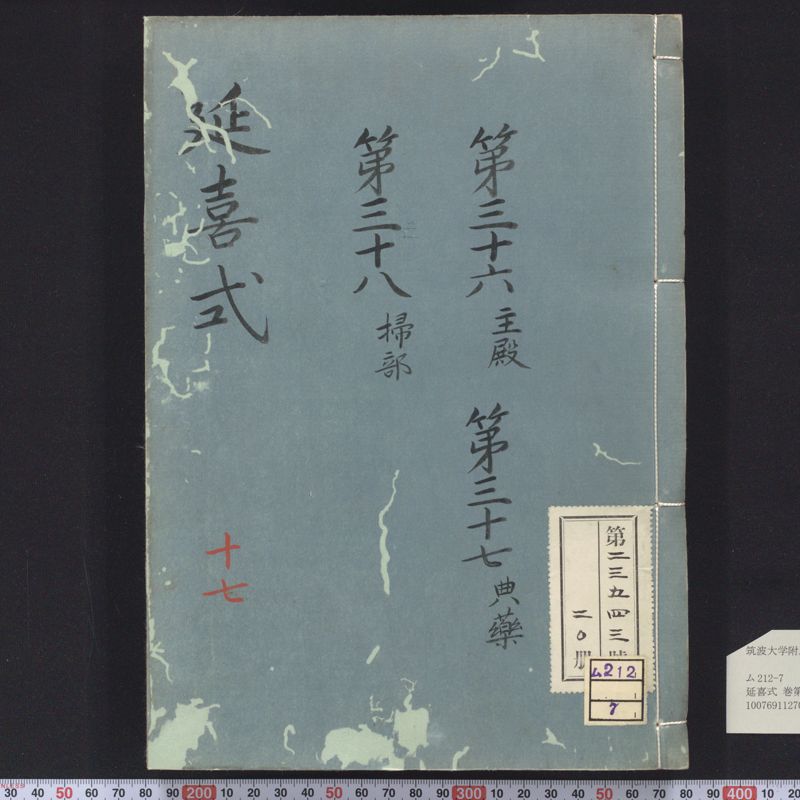 第三十六 主殿 第三十七 典藥
第三十八 掃部
延喜式
十七
第二三九四三號
二〇册
ム212
7
筑波大学附
ム212-7
延喜式 巻第
1007691127
30 40 50 60 70 80 90 200 10 20 30 40 50 60 70 80 90 300 10 20 30 40 50 60 70 80 90 400 10 20